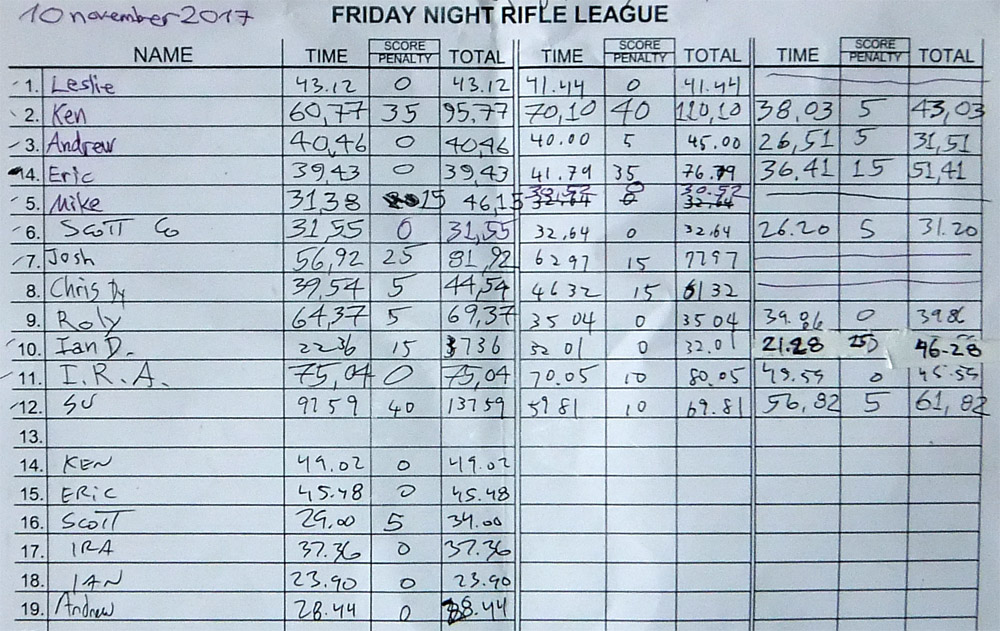 10 november 2017
FRIDAY NIGHT RIFLE LEAGUE
NAME TIME SCORE PENALTY TOTAL TIME SCORE PENALTY TOTAL TIME SCORE PENALTY TOTAL
1. Leslie 43.12 0 43.12 41.44 0 41.44
2. Ken 60,77 35 95,77 70,10 40 110,10 38,03 5 43,03
3. Andrew 40,46 0 40,46 40.00 5 45.00 26,51 5 31,51
4. Eric 39,43 0 39,43 41.79 35 76.79 36.41 15 51,41
5. Mike 31,38 15 46,13 30.52 0 30.52
32.64 0 32.64
6. SCOTT Co 31,55 0 31,55 32,64 0 32.64 26.20 5 31.20
7. Josh 56,92 25 81,92 6297 15 7797
8. Chris Dy 39,54 5 44,54 4632 15 6132
9. Roly 64,37 5 69,37 35 04 0 35 04 39.86 0 3986
10. Ian D. 2236 15 3736 32 01 0 32.01 21.28 25 46.28
11. I.R.A. 75,04 0 75,04 70.05 10 80.05 0
12. SU 9759 40 13759 5981 10 69.81 56,82 5 61,82
13.
14. KEN 49.02 0 49.02
15. ERiC 45.48 0 45.48
16. SCOTT 29.00 5 34.00
17. IRA 37.36 0 37.36
18. IAN 23.90 0 23.90
19. Andrew 28.44 0 28.44